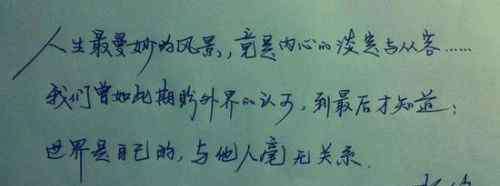 人生最曼妙的风景，竟是内心的淡定与从容……
我们曾如此期盼外界的认可，到最后才知道：
世界是自己的，与他人毫无关系.